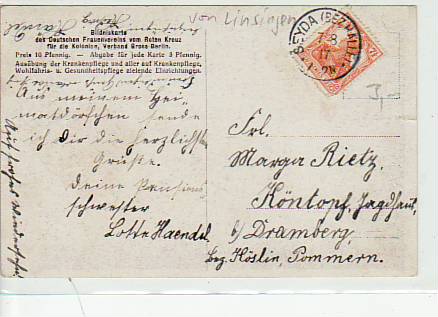 von Linsingen
Bildniskarte
des Deutschen Frauenvereins vom Roten Kreuz
für die Kolonien, Verband Gross-Berlin.
Preis 10 Pfennig. — Abgabe für jede Karte 3 Pfennig.
Ausübung der Krankenpflege und aller auf Krankenpflege,
Wohlfahrts- u. Gesundheitspflege zielende Einrichtungen.
Aus meinem Hei-
matdörfchen sende
ich Dir die herzlichsten
Grüße.
Deine Pensions-
schwester
Lotte Haendel
Auf frohes Wiedersehn
SEYDA (BEZ. HALLE)
8
17
3,-
Frl.
Marga Rietz,
Kontopf, Jagdhaus,
b/ Dramberg,
Bez. Köslin, Pommern.